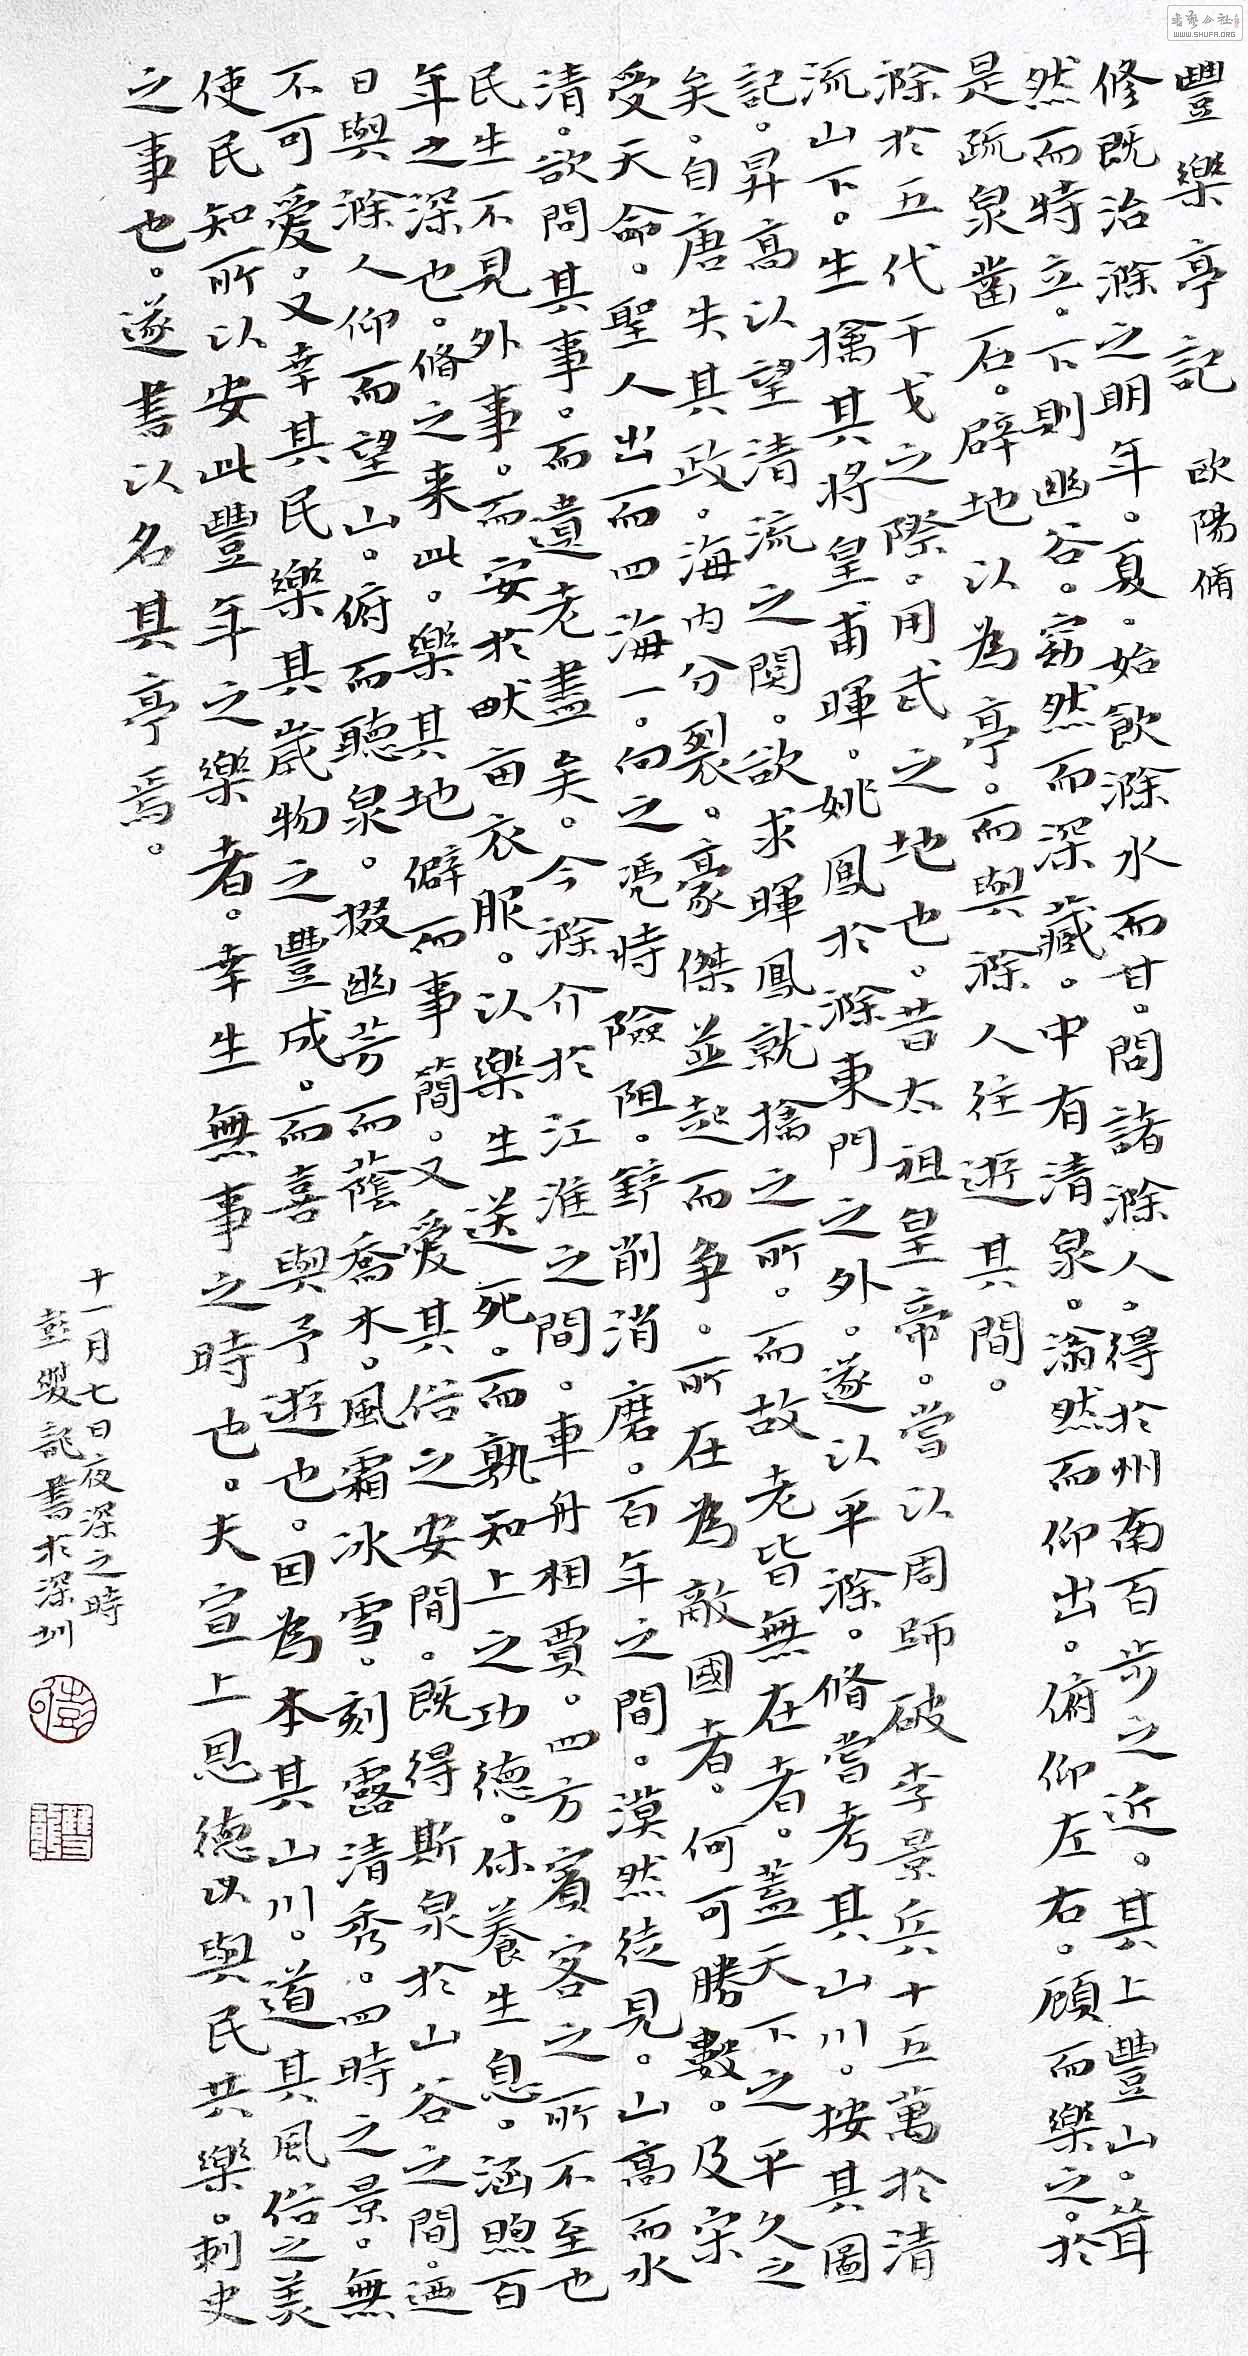 豐樂亭記 歐陽脩
修既治滁之明年。夏。始飲滁水而甘。問諸滁人。得於州南百步之近。其上豐山。聳
然而特立。下則幽谷。窈然而深藏。中有清泉。滃然而仰出。俯仰左右。顧而樂之。於
是疏泉鑿石。辟地以為亭。而與滁人往遊其間。
滁於五代干戈之際。用武之地也。昔太祖皇帝。嘗以周師破李景兵十五萬於清
流山下。生擒其將皇甫暉。姚鳳於滁東門之外。遂以平滁。脩嘗考其山川。按其圖
記。昇高以望清流之関。欲求暉鳳就擒之所。而故老皆無在者。蓋天下之平久之
矣。自唐失其政。海内分裂。豪傑並起而爭。所在為敵國者。何可勝數。及宋
受天命。聖人出而四海一。向之凴恃險阻。鏟削消磨。百年之間。漠然徒見。山高而水
清。欲問其事。而遺老盡矣。今滁介於江淮之間。車舟相賈。四方賓客之所不至也
民生不見外事。而安於畎亩衣服。以樂生送死。而孰知上之功德。休養生息。涵煦百
年之深也。脩之来此。樂其地僻而事簡。又愛其俗之安閒。既得斯泉於山谷之間。迺
日與滁人仰而望山。俯而聽泉。掇幽芳而蔭喬木。風霜冰雪。刻露清秀。四時之景。無
不可愛。又幸其民樂其歲物之豐成。而喜與予遊也。因為本其山川。道其風俗之美
使民知所以安此豐年之樂者。幸生無事之時也。夫宣上恩德以與民共樂。刺史
之事也。遂書以名其亭焉。
十一月七日夜深之時
彭雙龍書於深圳
彭
雙龍
書藝公社
WWW.SHUFA.ORG